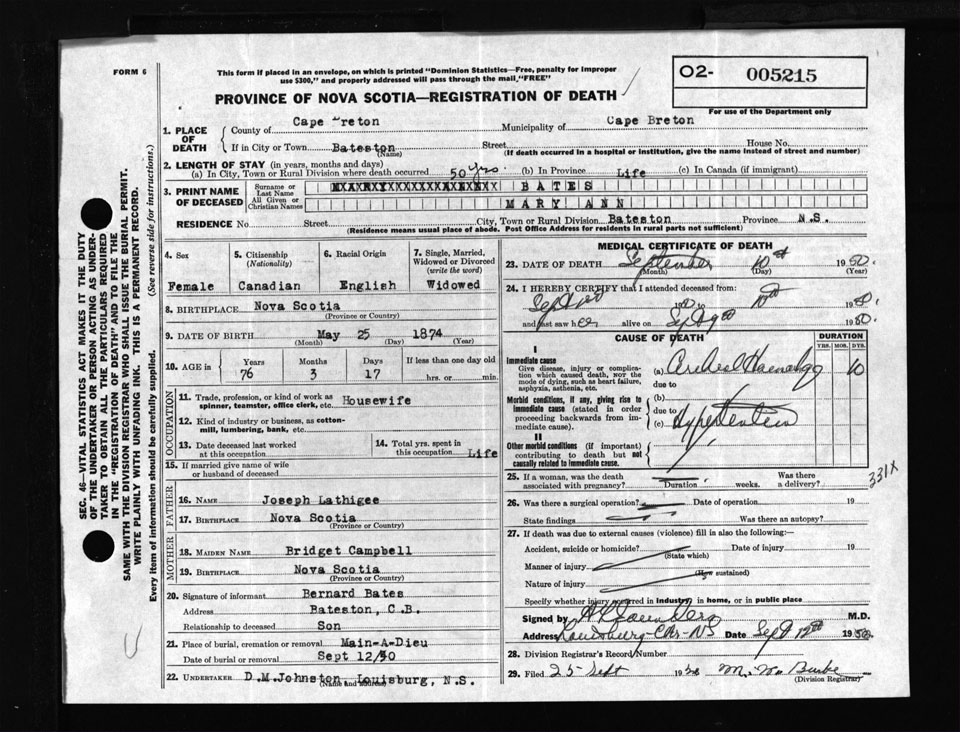 FORM 6
This form if placed in an envelope, on which is printed "Dominion Statistics—Free, penalty for improper
use $300," and properly addressed will pass through the mail, "FREE"
O2- 005215
For use of the Department only
PROVINCE OF NOVA SCOTIA—REGISTRATION OF DEATH
1. PLACE OF DEATH
County of Cape Breton Municipality of Cape Breton
If in City or Town Bateston Street House No.
(Name) (If death occurred in a hospital or institution, give the name instead of street and number)
2. LENGTH OF STAY (in years, months and days)
(a) In City, Town or Rural Division where death occurred 50 yrs. (b) In Province Life (c) In Canada (if immigrant)
3. PRINT NAME OF DECEASED
Surname or Last Name BATES
All Given or Christian Names MARY ANN
RESIDENCE No. Street City, Town or Rural Division Bateston Province N.S.
(Residence means usual place of abode. Post Office Address for residents in rural parts not sufficient)
4. Sex 5. Citizenship (Nationality) 6. Racial Origin 7. Single, Married, Widowed or Divorced (write the word)
Female Canadian English Widowed
8. BIRTHPLACE Nova Scotia
(Province or Country)
9. DATE OF BIRTH May 25 1874
(Month) (Day) (Year)
10. AGE in Years Months Days If less than one day old
76 3 17 hrs. or min.
OCCUPATION
11. Trade, profession, or kind of work as spinner, teamster, office clerk, etc. Housewife
12. Kind of industry or business, as cotton-mill, lumbering, bank, etc.
13. Date deceased last worked at this occupation
14. Total yrs. spent in this occupation Life
15. If married give name of wife or husband of deceased
FATHER
16. NAME Joseph Lathigee
17. BIRTHPLACE Nova Scotia
(Province or Country)
MOTHER
18. MAIDEN NAME Bridget Campbell
19. BIRTHPLACE Nova Scotia
(Province or Country)
20. Signature of informant Bernard Bates
Address Bateston, C.B.
Relationship to deceased Son
21. Place of burial, cremation or removal Main-A-Dieu
Date of burial or removal Sept 12/50
22. UNDERTAKER D.M.Johnston Louisburg, N.S.
(Name and address)
MEDICAL CERTIFICATE OF DEATH
23. DATE OF DEATH September 10th 1950.
(Month) (Day) (Year)
24. I HEREBY CERTIFY that I attended deceased from:
19 to 10th 1950.
and last saw her alive on Sept 1950.
CAUSE OF DEATH
DURATION
YRS. MOS. DYS.
I
Immediate cause
Give disease, injury or complication which caused death, NOT the mode of dying, such as heart failure, asphyxia, asthenia, etc.
(a) 10
due to
Morbid conditions, if any, giving rise to immediate cause (stated in order proceeding backwards from immediate cause).
(b)
due to
(c) Hypertension
II
Other morbid conditions (if important) contributing to death but not causally related to immediate cause.
25. If a woman, was the death associated with pregnancy? Duration weeks. Was there a delivery?
331X
26. Was there a surgical operation? Date of operation 19
State findings Was there an autopsy?
27. If death was due to external causes (violence) fill in also the following:—
Accident, suicide or homicide? Date of injury 19
(State which)
Manner of injury
(How sustained)
Nature of injury
Specify whether injury occurred in industry, in home, or in public place
Signed by M.D.
Address Louisburg Date Sept 12th 1950.
28. Division Registrar's Record Number
29. Filed 25 Sept 1950 Burke
(Division Registrar)
SEC. 46—VITAL STATISTICS ACT MAKES IT THE DUTY
OF THE UNDERTAKER OR PERSON ACTING AS UNDER-
TAKER TO OBTAIN ALL THE PARTICULARS REQUIRED
IN THE "REGISTRATION OF DEATH" AND TO FILE THE
SAME WITH THE DIVISION REGISTRAR WHO SHALL ISSUE THE BURIAL PERMIT.
WRITE PLAINLY WITH UNFADING INK. THIS IS A PERMANENT RECORD.
Every item of information should be carefully supplied. (See reverse side for instructions.)